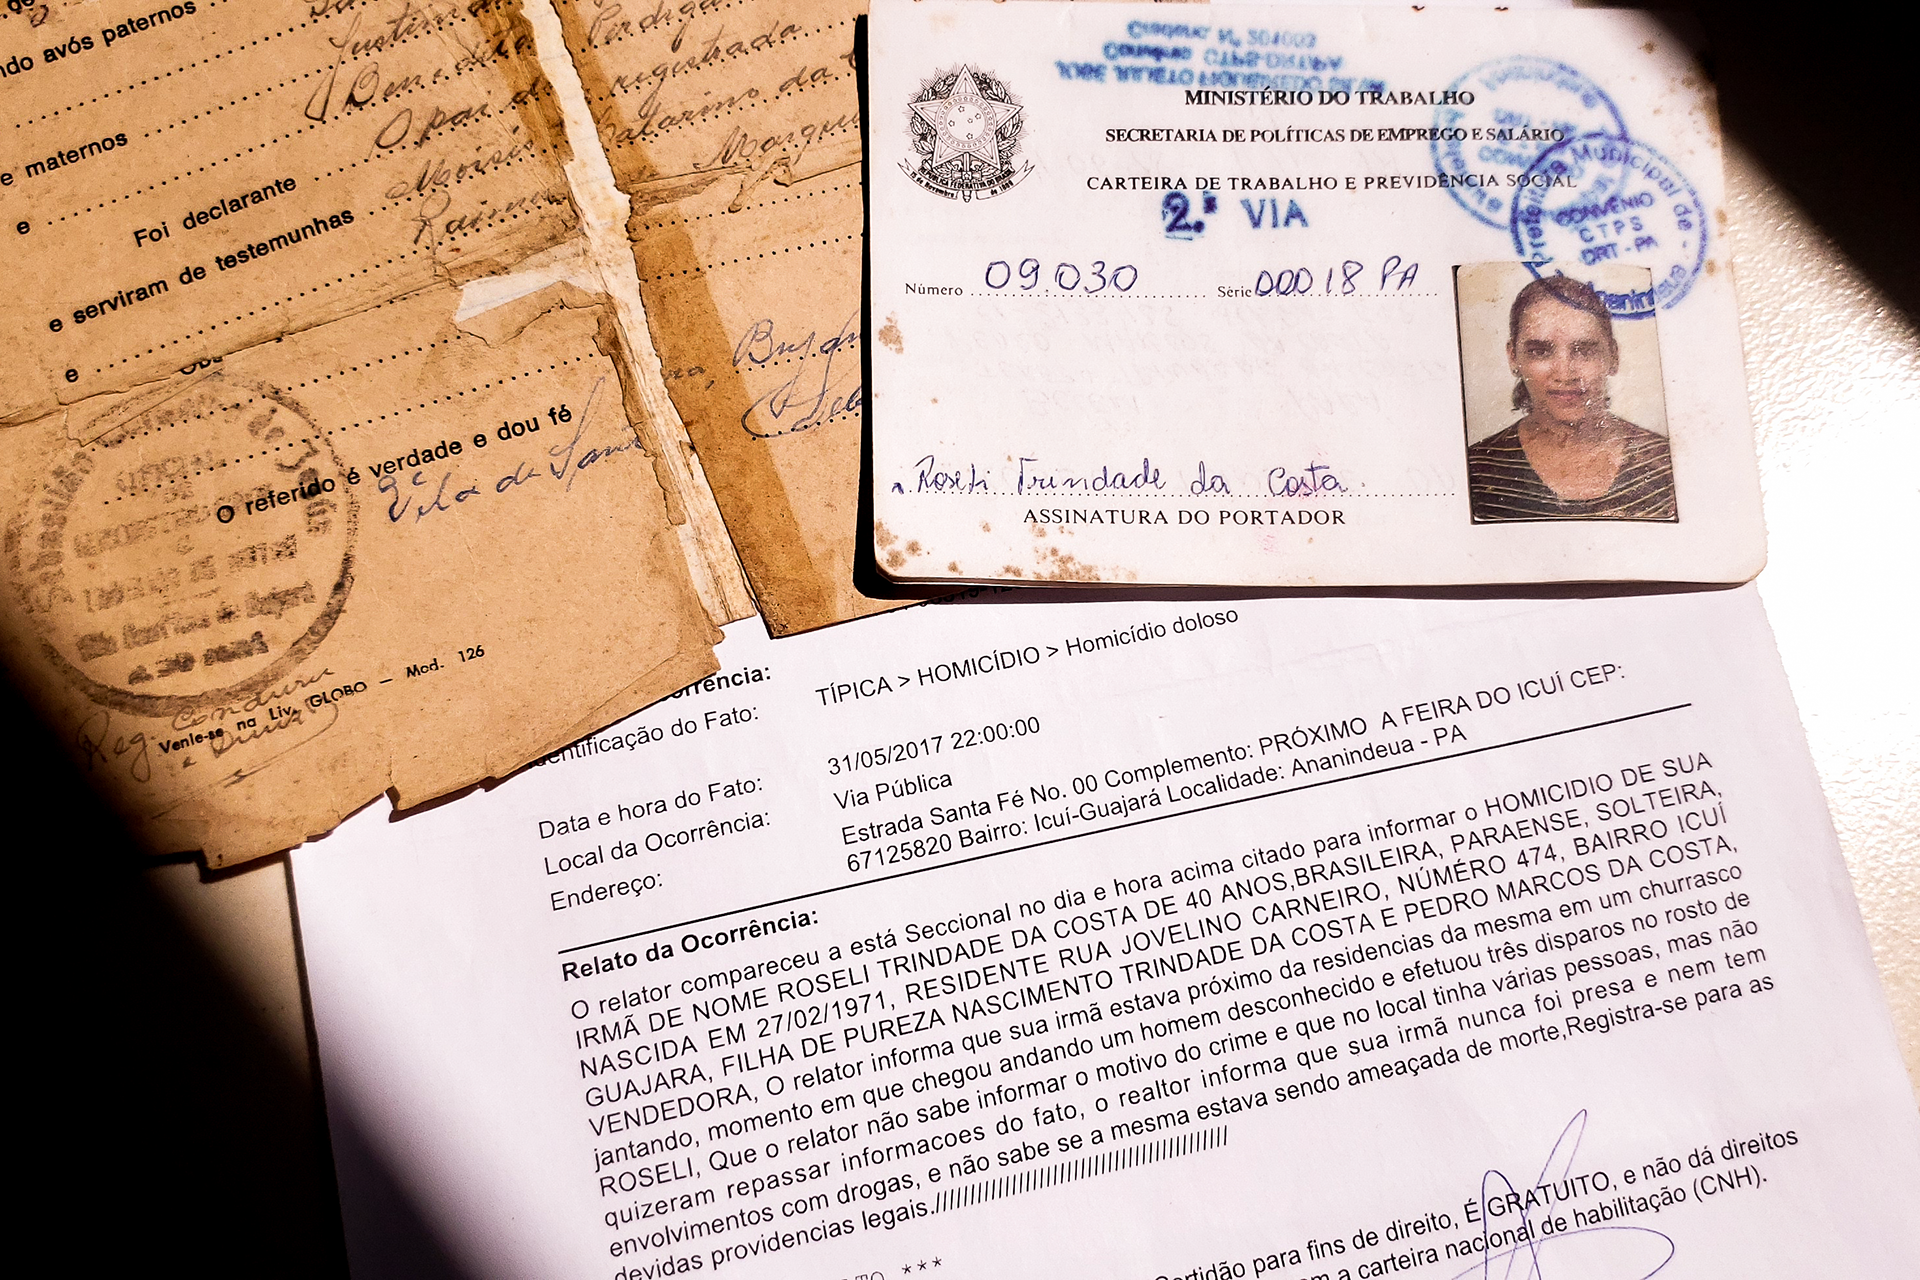 ndo avós paternos
Justina
e maternos
Benedito Perdigão
e
O pai do registrada
Foi declarante
Moisés Catarino da
e serviram de testemunhas
Marque
e
O referido é verdade e dou fé
Vila de
Mod. 126
Vende-se na Liv. GLOBO
MINISTÉRIO DO TRABALHO
SECRETARIA DE POLÍTICAS DE EMPREGO E SALÁRIO
CARTEIRA DE TRABALHO E PREVIDÊNCIA SOCIAL
2.ª VIA
Prefeitura Municipal de Ananindeua
CONVÊNIO
CTPS
DRT-PA
Número 09.030 Série 00018 PA
Roseli Trindade da Costa
ASSINATURA DO PORTADOR
orrência:
TÍPICA > HOMICÍDIO > Homicídio doloso
entificação do Fato:
Data e hora do Fato: 31/05/2017 22:00:00
Local da Ocorrência: Via Pública
Endereço: Estrada Santa Fé No. 00 Complemento: PRÓXIMO A FEIRA DO ICUÍ CEP:
67125820 Bairro: Icuí-Guajará Localidade: Ananindeua - PA
Relato da Ocorrência:
O relator compareceu a está Seccional no dia e hora acima citado para informar o HOMICIDIO DE SUA
IRMÃ DE NOME ROSELI TRINDADE DA COSTA DE 40 ANOS,BRASILEIRA, PARAENSE, SOLTEIRA,
NASCIDA EM 27/02/1971, RESIDENTE RUA JOVELINO CARNEIRO, NÚMÉRO 474, BAIRRO ICUÍ
GUAJARA, FILHA DE PUREZA NASCIMENTO TRINDADE DA COSTA E PEDRO MARCOS DA COSTA,
VENDEDORA, O relator informa que sua irmã estava próximo da residencias da mesma em um churrasco
jantando, momento em que chegou andando um homem desconhecido e efetuou três disparos no rosto de
ROSELI, Que o relator não sabe informar o motivo do crime e que no local tinha várias pessoas, mas não
quizeram repassar informacoes do fato, o realtor informa que sua irmã nunca foi presa e nem tem
envolvimentos com drogas, e não sabe se a mesma estava sendo ameaçada de morte,Registra-se para as
devidas providencias legais.////////////////////////////////////////////
***
ertidão para fins de direito, É GRATUITO, e não dá direitos
m a carteira nacional de habilitação (CNH).